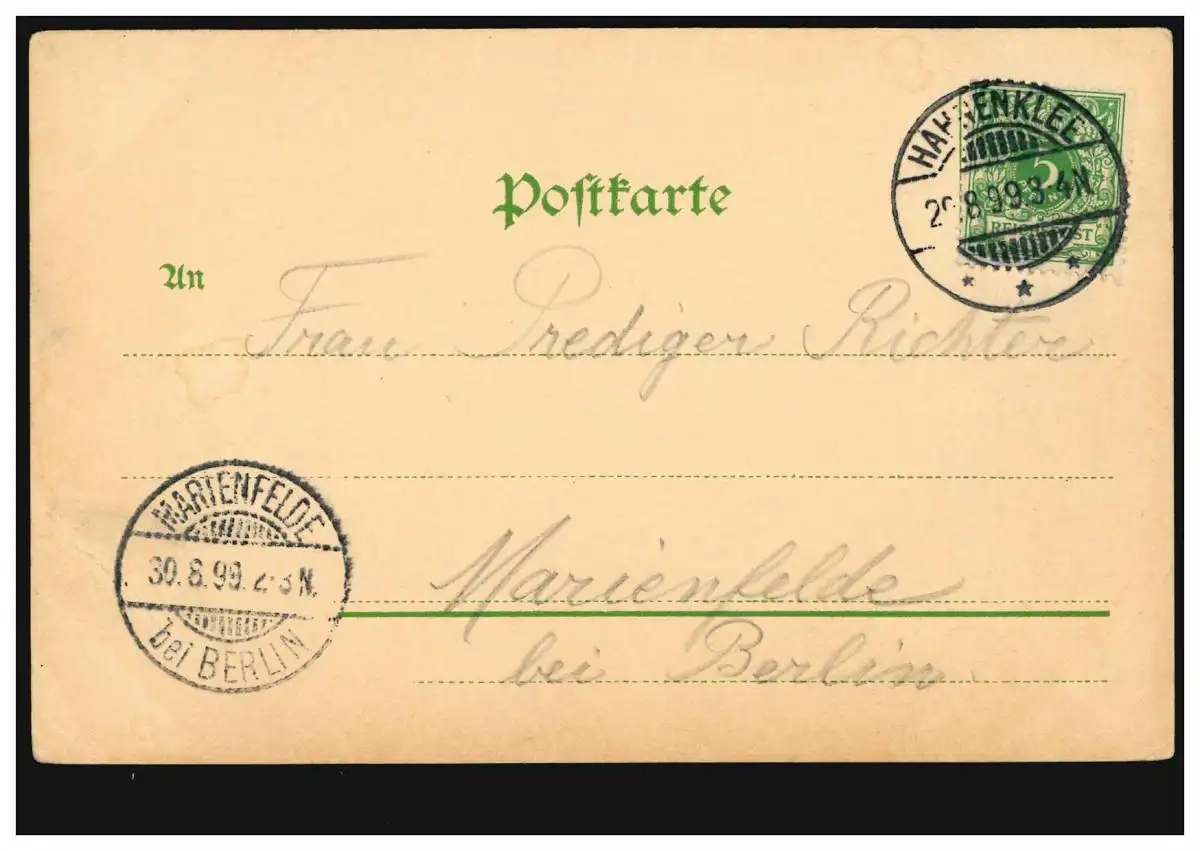 Postkarte
HAHNENKLEE
29.8.99.3-4N.
5
REICHSPOST
An
Frau Prediger Richter
MARIENFELDE
30.8.99.2-3N.
bei BERLIN
Marienfelde
bei Berlin.